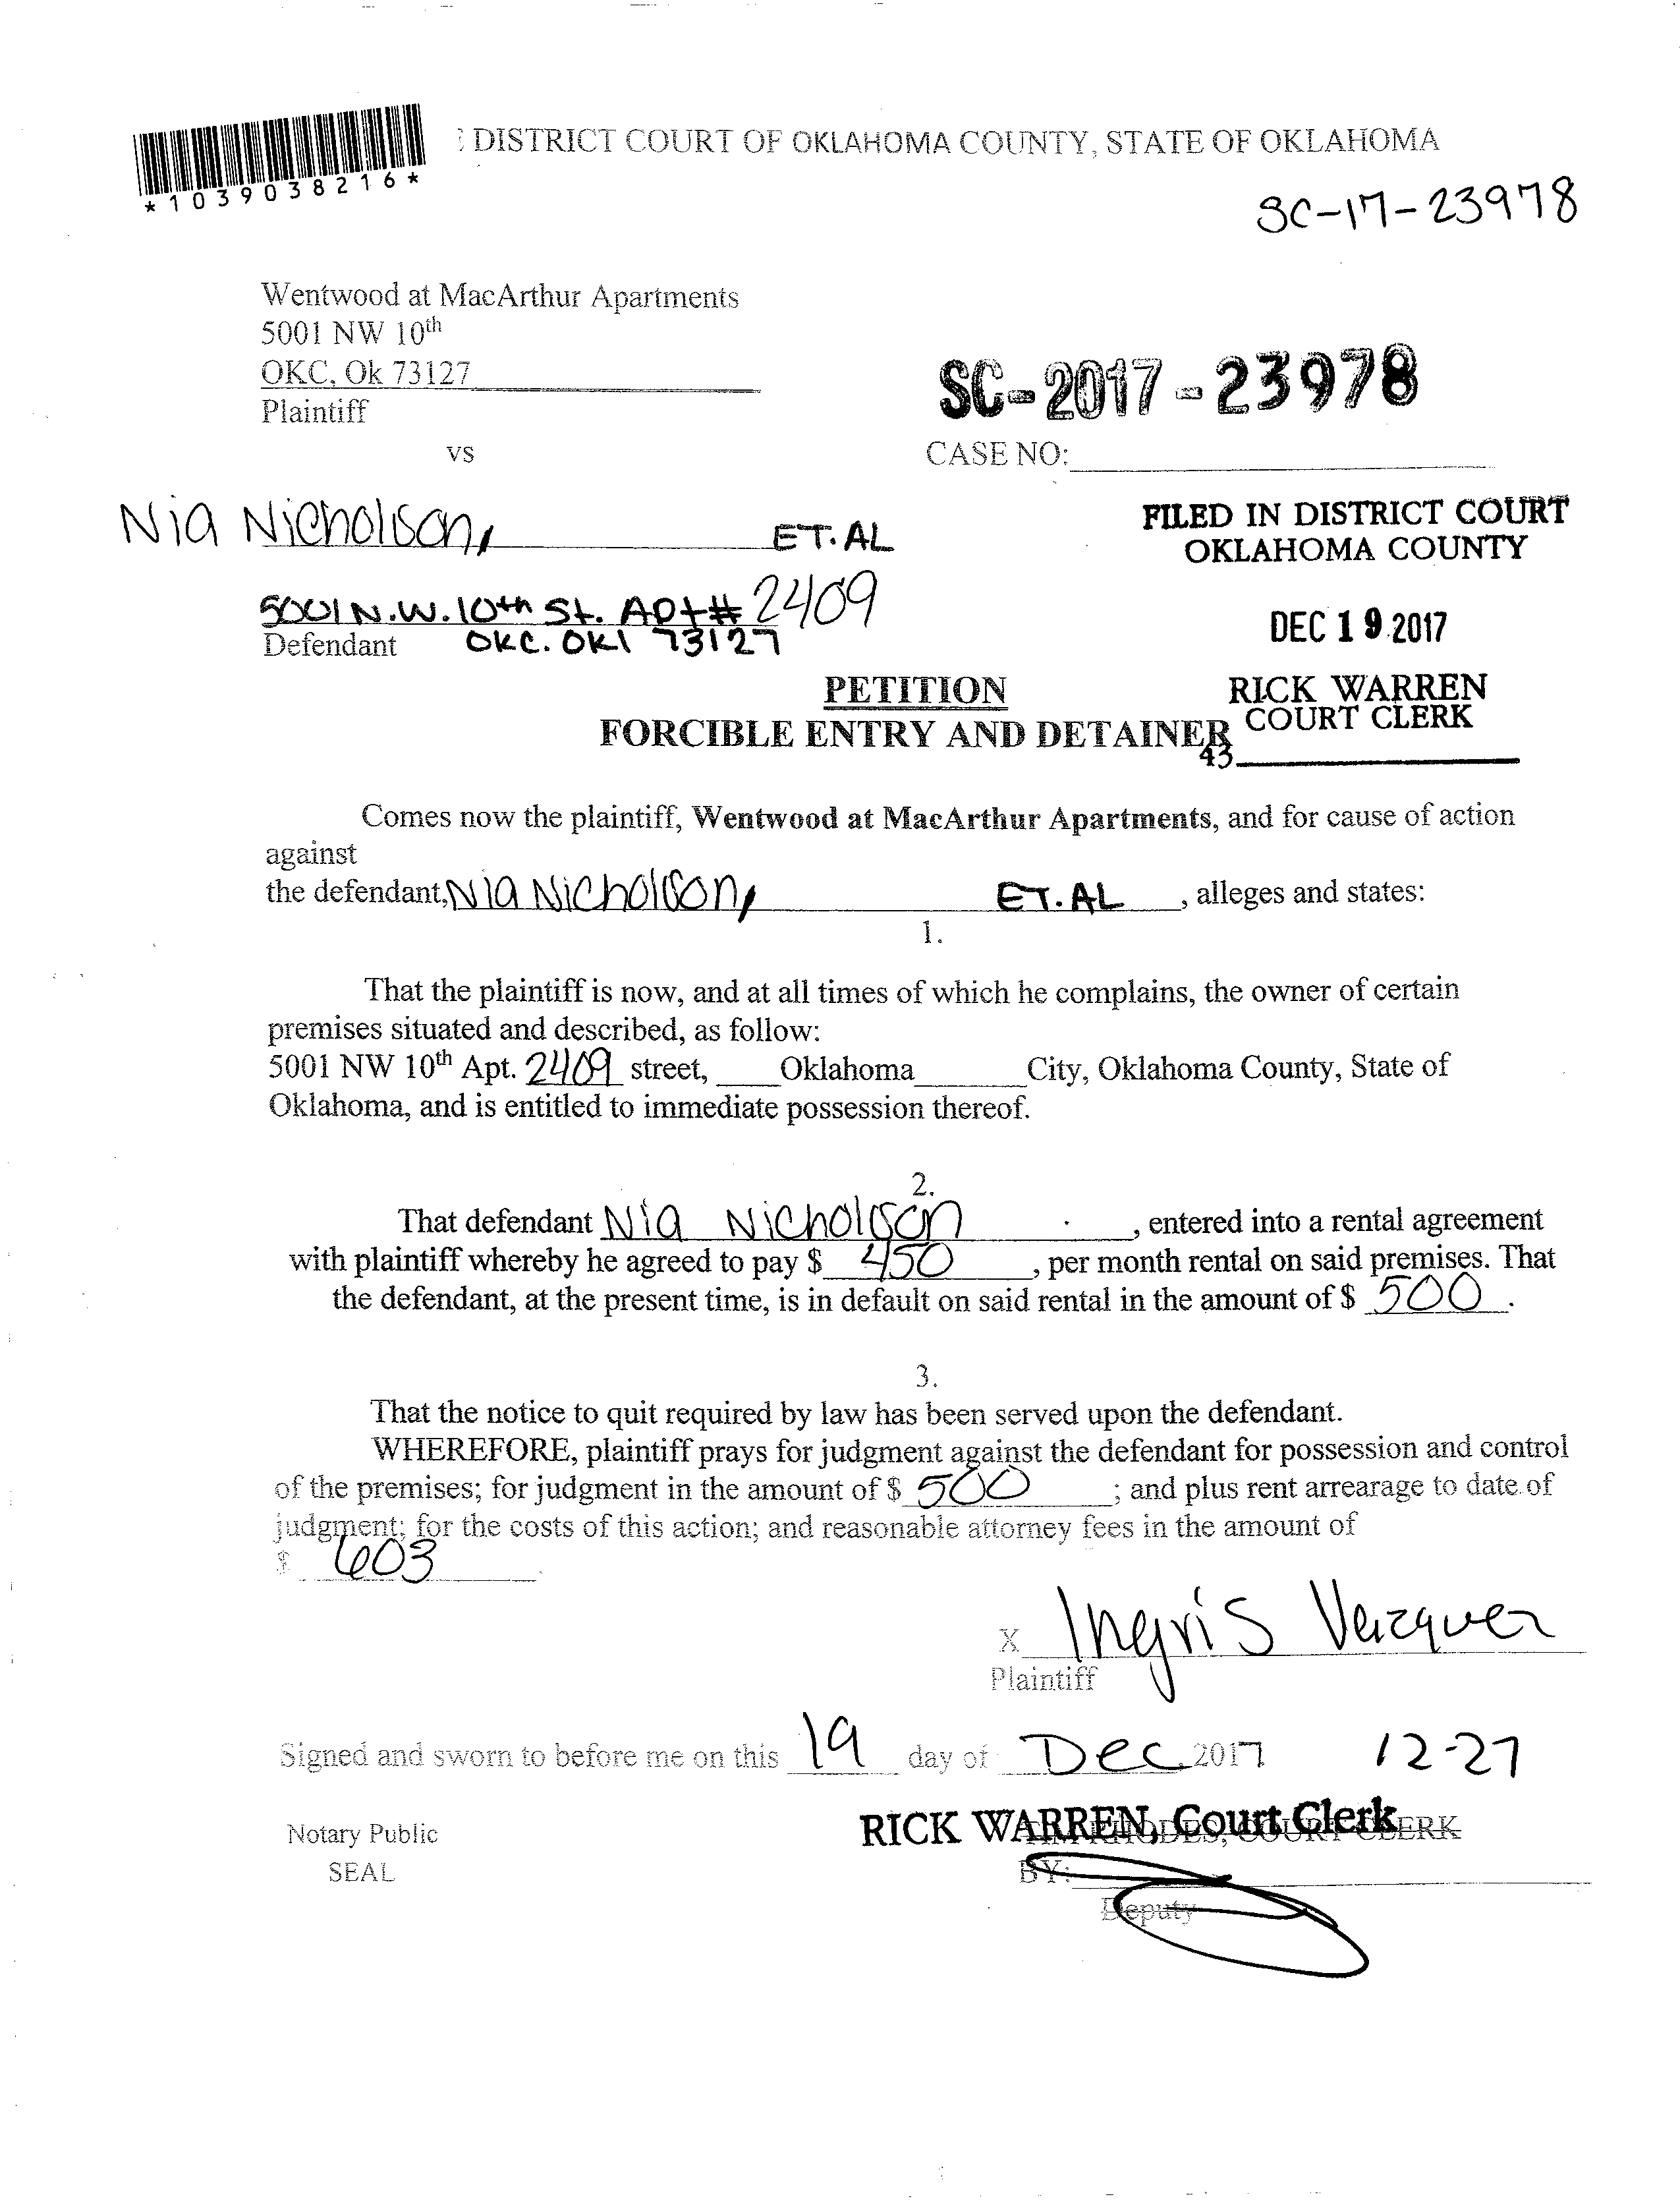 DISTRICT COURT OF OKLAHOMA COUNTY, STATE OF OKLAHOMA
*1039038216*
SC-17-23978
Wentwood at MacArthur Apartments
5001 NW 10th
OKC, Ok 73127
Plaintiff
SC-2017-23978
vs
CASE NO:
Nia Nicholson, ET.AL
FILED IN DISTRICT COURT
OKLAHOMA COUNTY
5001 N.W. 10th St. Apt# 2409
Defendant OKC. OKl 73127
DEC 19 2017
PETITION
RICK WARREN
COURT CLERK
FORCIBLE ENTRY AND DETAINER
43
Comes now the plaintiff, Wentwood at MacArthur Apartments, and for cause of action
against
the defendant, Nia Nicholson, ET.AL, alleges and states:
1.
That the plaintiff is now, and at all times of which he complains, the owner of certain
premises situated and described, as follow:
5001 NW 10th Apt. 2409 street, Oklahoma City, Oklahoma County, State of
Oklahoma, and is entitled to immediate possession thereof.
2.
That defendant Nia Nicholson, entered into a rental agreement
with plaintiff whereby he agreed to pay $ 450, per month rental on said premises. That
the defendant, at the present time, is in default on said rental in the amount of $ 500.
3.
That the notice to quit required by law has been served upon the defendant.
WHEREFORE, plaintiff prays for judgment against the defendant for possession and control
of the premises; for judgment in the amount of $ 500; and plus rent arrearage to date of
judgment; for the costs of this action; and reasonable attorney fees in the amount of
$ 603
x Ingris Vazquez
Plaintiff
Signed and sworn to before me on this 19 day of Dec 2017 12-27
Notary Public
RICK WARREN, Court Clerk
SEAL
BY:
Deputy